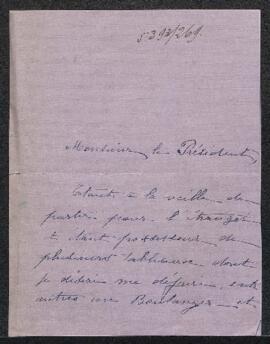 5393/269.
Monsieur le Président,
Etant à la veille de
partir pour l'étranger
et étant possesseur de
plusieurs tableaux dont
je désire me défaire, entre
autres un Boulanger et